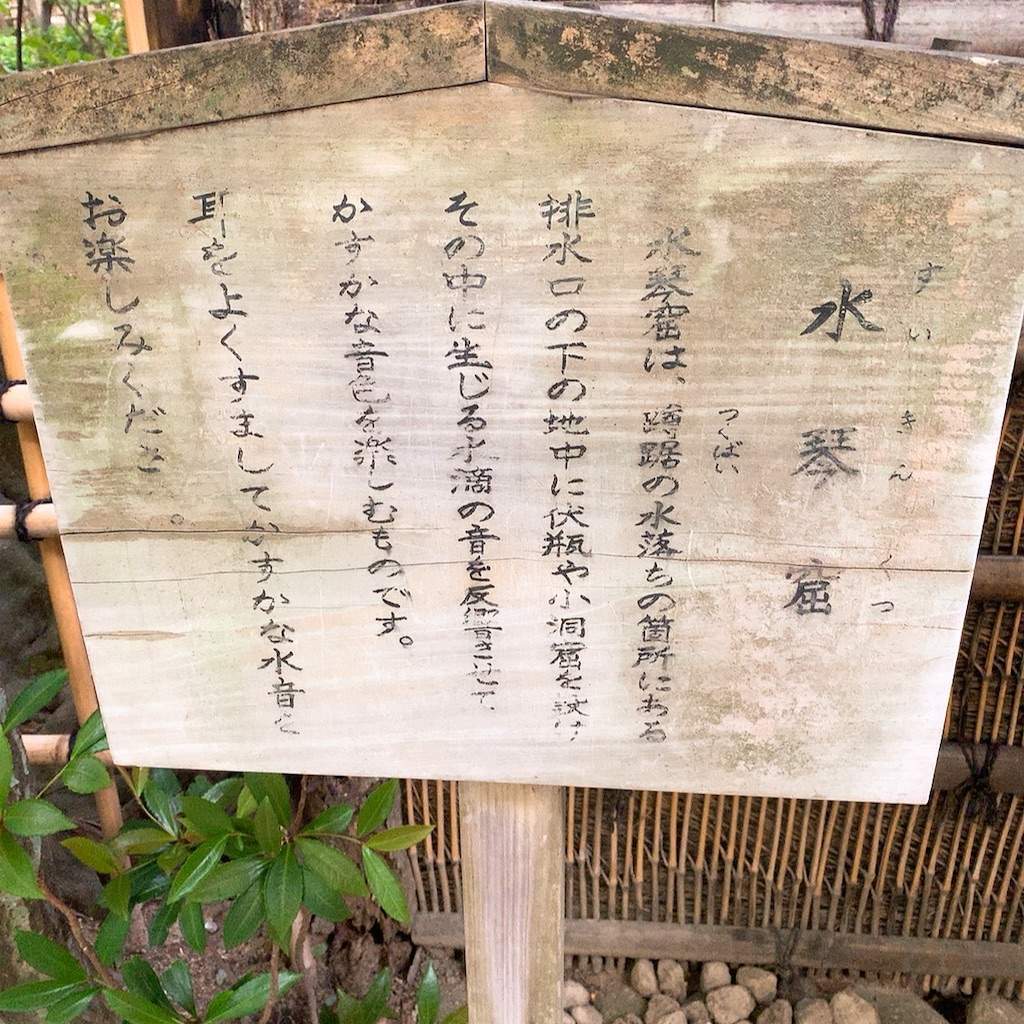 水琴窟
すいきんくつ
水琴窟は、蹲踞の水落ちの箇所にある
つくばい
排水口の下の地中に伏瓶や小洞窟を設け
その中に生じる水滴の音を反響させて、
かすかな音色を楽しむものです。
耳をよくすましてかすかな水音を
お楽しみくださ